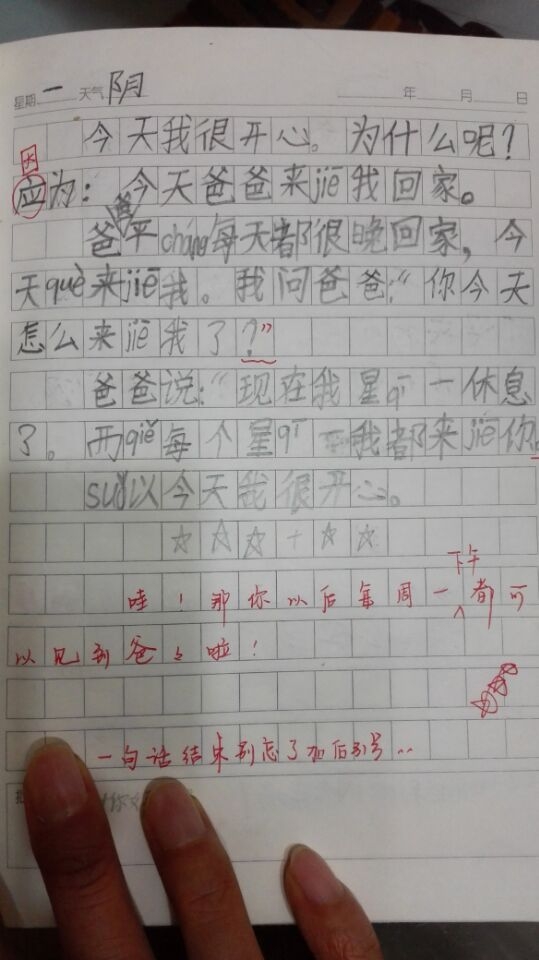 星期 一 天气 阴 年 月 日
今天我很开心。为什么呢?
因
应为:今天爸爸来jiē我回家。
爸爸平cháng每天都很晚回家,今
天què来jiē我。我问爸爸:“你今天
怎么来jiē我了?”
爸爸说:“现在我星qī一休息
了。而qiě每个星qī一我都来jiē你。
suǒ以今天我很开心。
☆☆☆+☆☆
下午
哇!那你以后每周一都可
以见到爸々啦!
一句话结束别忘了加后引号…